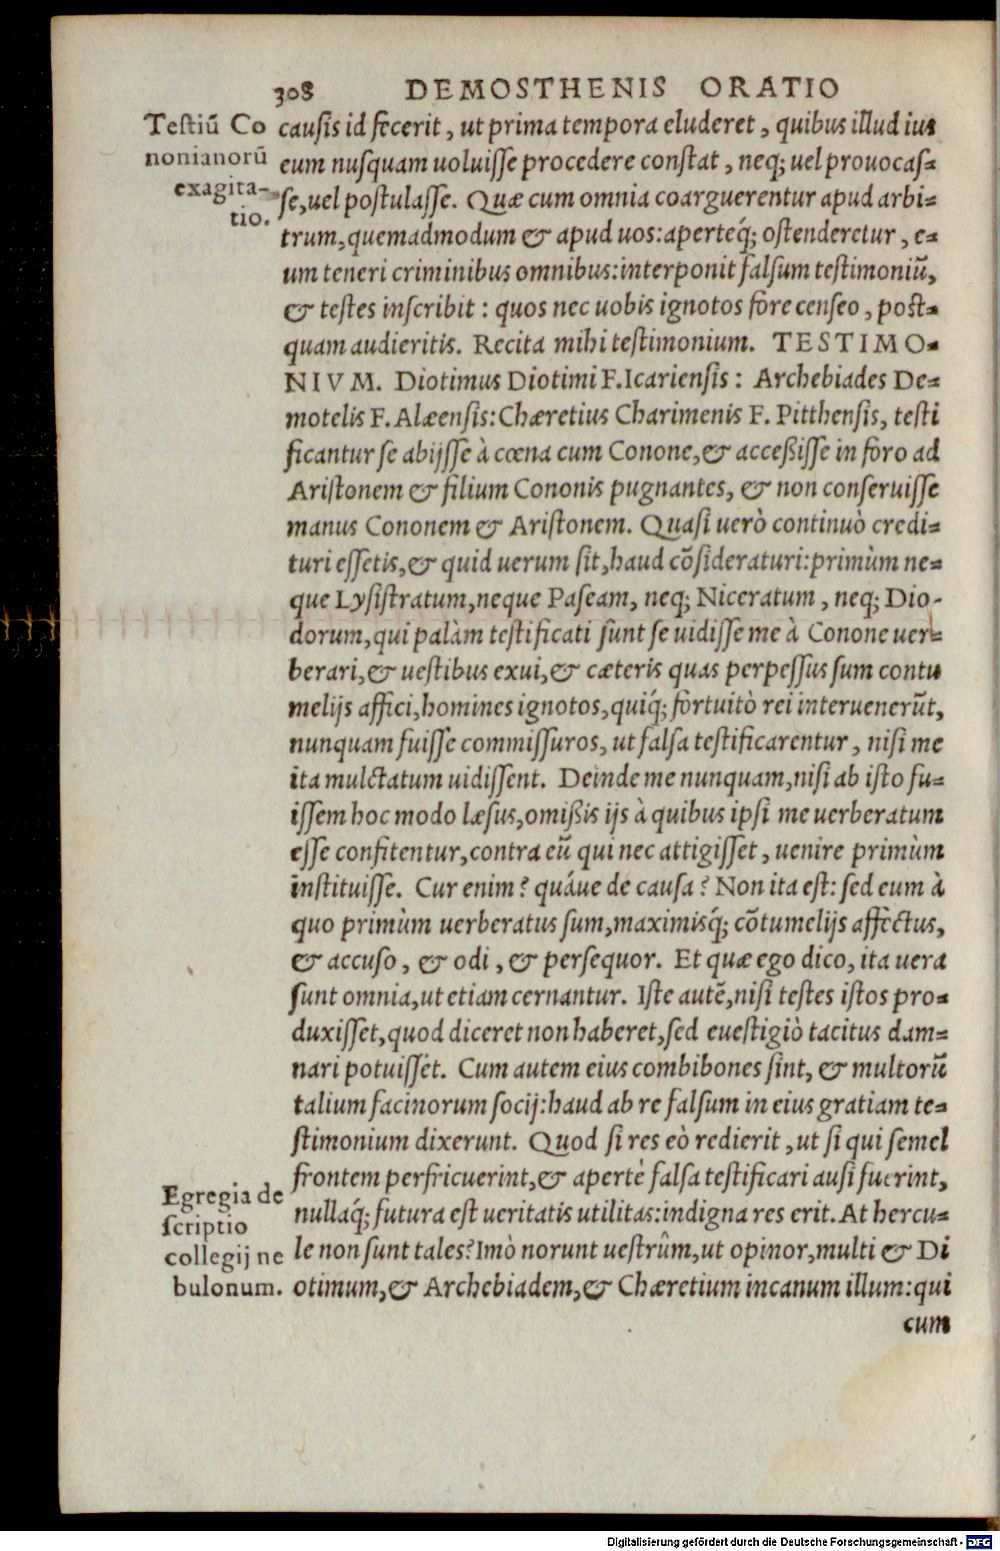 308 DEMOSTHENIS ORATIO
Testiū Co
nonianorū
exagita-
tio.
causis id fecerit, ut prima tempora eluderet, quibus illud ius
eum nusquam uoluisse procedere constat, neq; uel prouocas=
se, uel postulasse. Quæ cum omnia coarguerentur apud arbi=
trum, quemadmodum & apud uos: aperteq́; ostenderetur, e=
um teneri criminibus omnibus: interponit falsum testimoniū,
& testes inscribit: quos nec uobis ignotos fore censeo, post=
quam audieritis. Recita mihi testimonium. TESTIMO=
NIVM. Diotimus Diotimi F. Icariensis: Archebiades De=
motelis F. Alæensis: Chæretius Charimenis F. Pitthensis, testi
ficantur se abijsse à cœna cum Conone, & acceßisse in foro ad
Aristonem & filium Cononis pugnantes, & non conseruisse
manus Cononem & Aristonem. Quasi uerò continuò credi=
turi essetis, & quid uerum sit, haud cōsideraturi: primùm ne=
que Lysistratum, neque Paseam, neq; Niceratum, neq; Dio-
dorum, qui palàm testificati sunt se uidisse me à Conone uer=
berari, & uestibus exui, & cæteris quas perpessus sum contu
melijs affici, homines ignotos, quiq́; fortuitò rei interuenerūt,
nunquam fuisse commissuros, ut falsa testificarentur, nisi me
ita mulctatum uidissent. Deinde me nunquam, nisi ab isto fu=
issem hoc modo læsus, omißis ijs à quibus ipsi me uerberatum
esse confitentur, contra eū qui nec attigisset, uenire primùm
instituisse. Cur enim? quáue de causa? Non ita est: sed eum à
quo primùm uerberatus sum, maximisq́; cōtumelijs affectus,
& accuso, & odi, & persequor. Et quæ ego dico, ita uera
sunt omnia, ut etiam cernantur. Iste autē, nisi testes istos pro=
duxisset, quod diceret non haberet, sed euestigiò tacitus dam=
nari potuisset. Cum autem eius combibones sint, & multorū
talium facinorum socij: haud ab re falsum in eius gratiam te=
stimonium dixerunt. Quod si res eò redierit, ut si qui semel
frontem perfricuerint, & apertè falsa testificari ausi fuerint,
nullaq́; futura est ueritatis utilitas: indigna res erit. At hercu=
le non sunt tales? Imò norunt uestrûm, ut opinor, multi & Di
otimum, & Archebiadem, & Chæretium incanum illum: qui
Egregia de
scriptio
collegij ne
bulonum.
cum
Digitalisierung gefördert durch die Deutsche Forschungsgemeinschaft - DFG